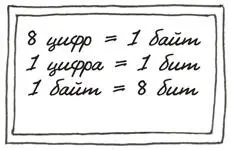 8 цифр = 1 байт
1 цифра = 1 бит
1 байт = 8 бит